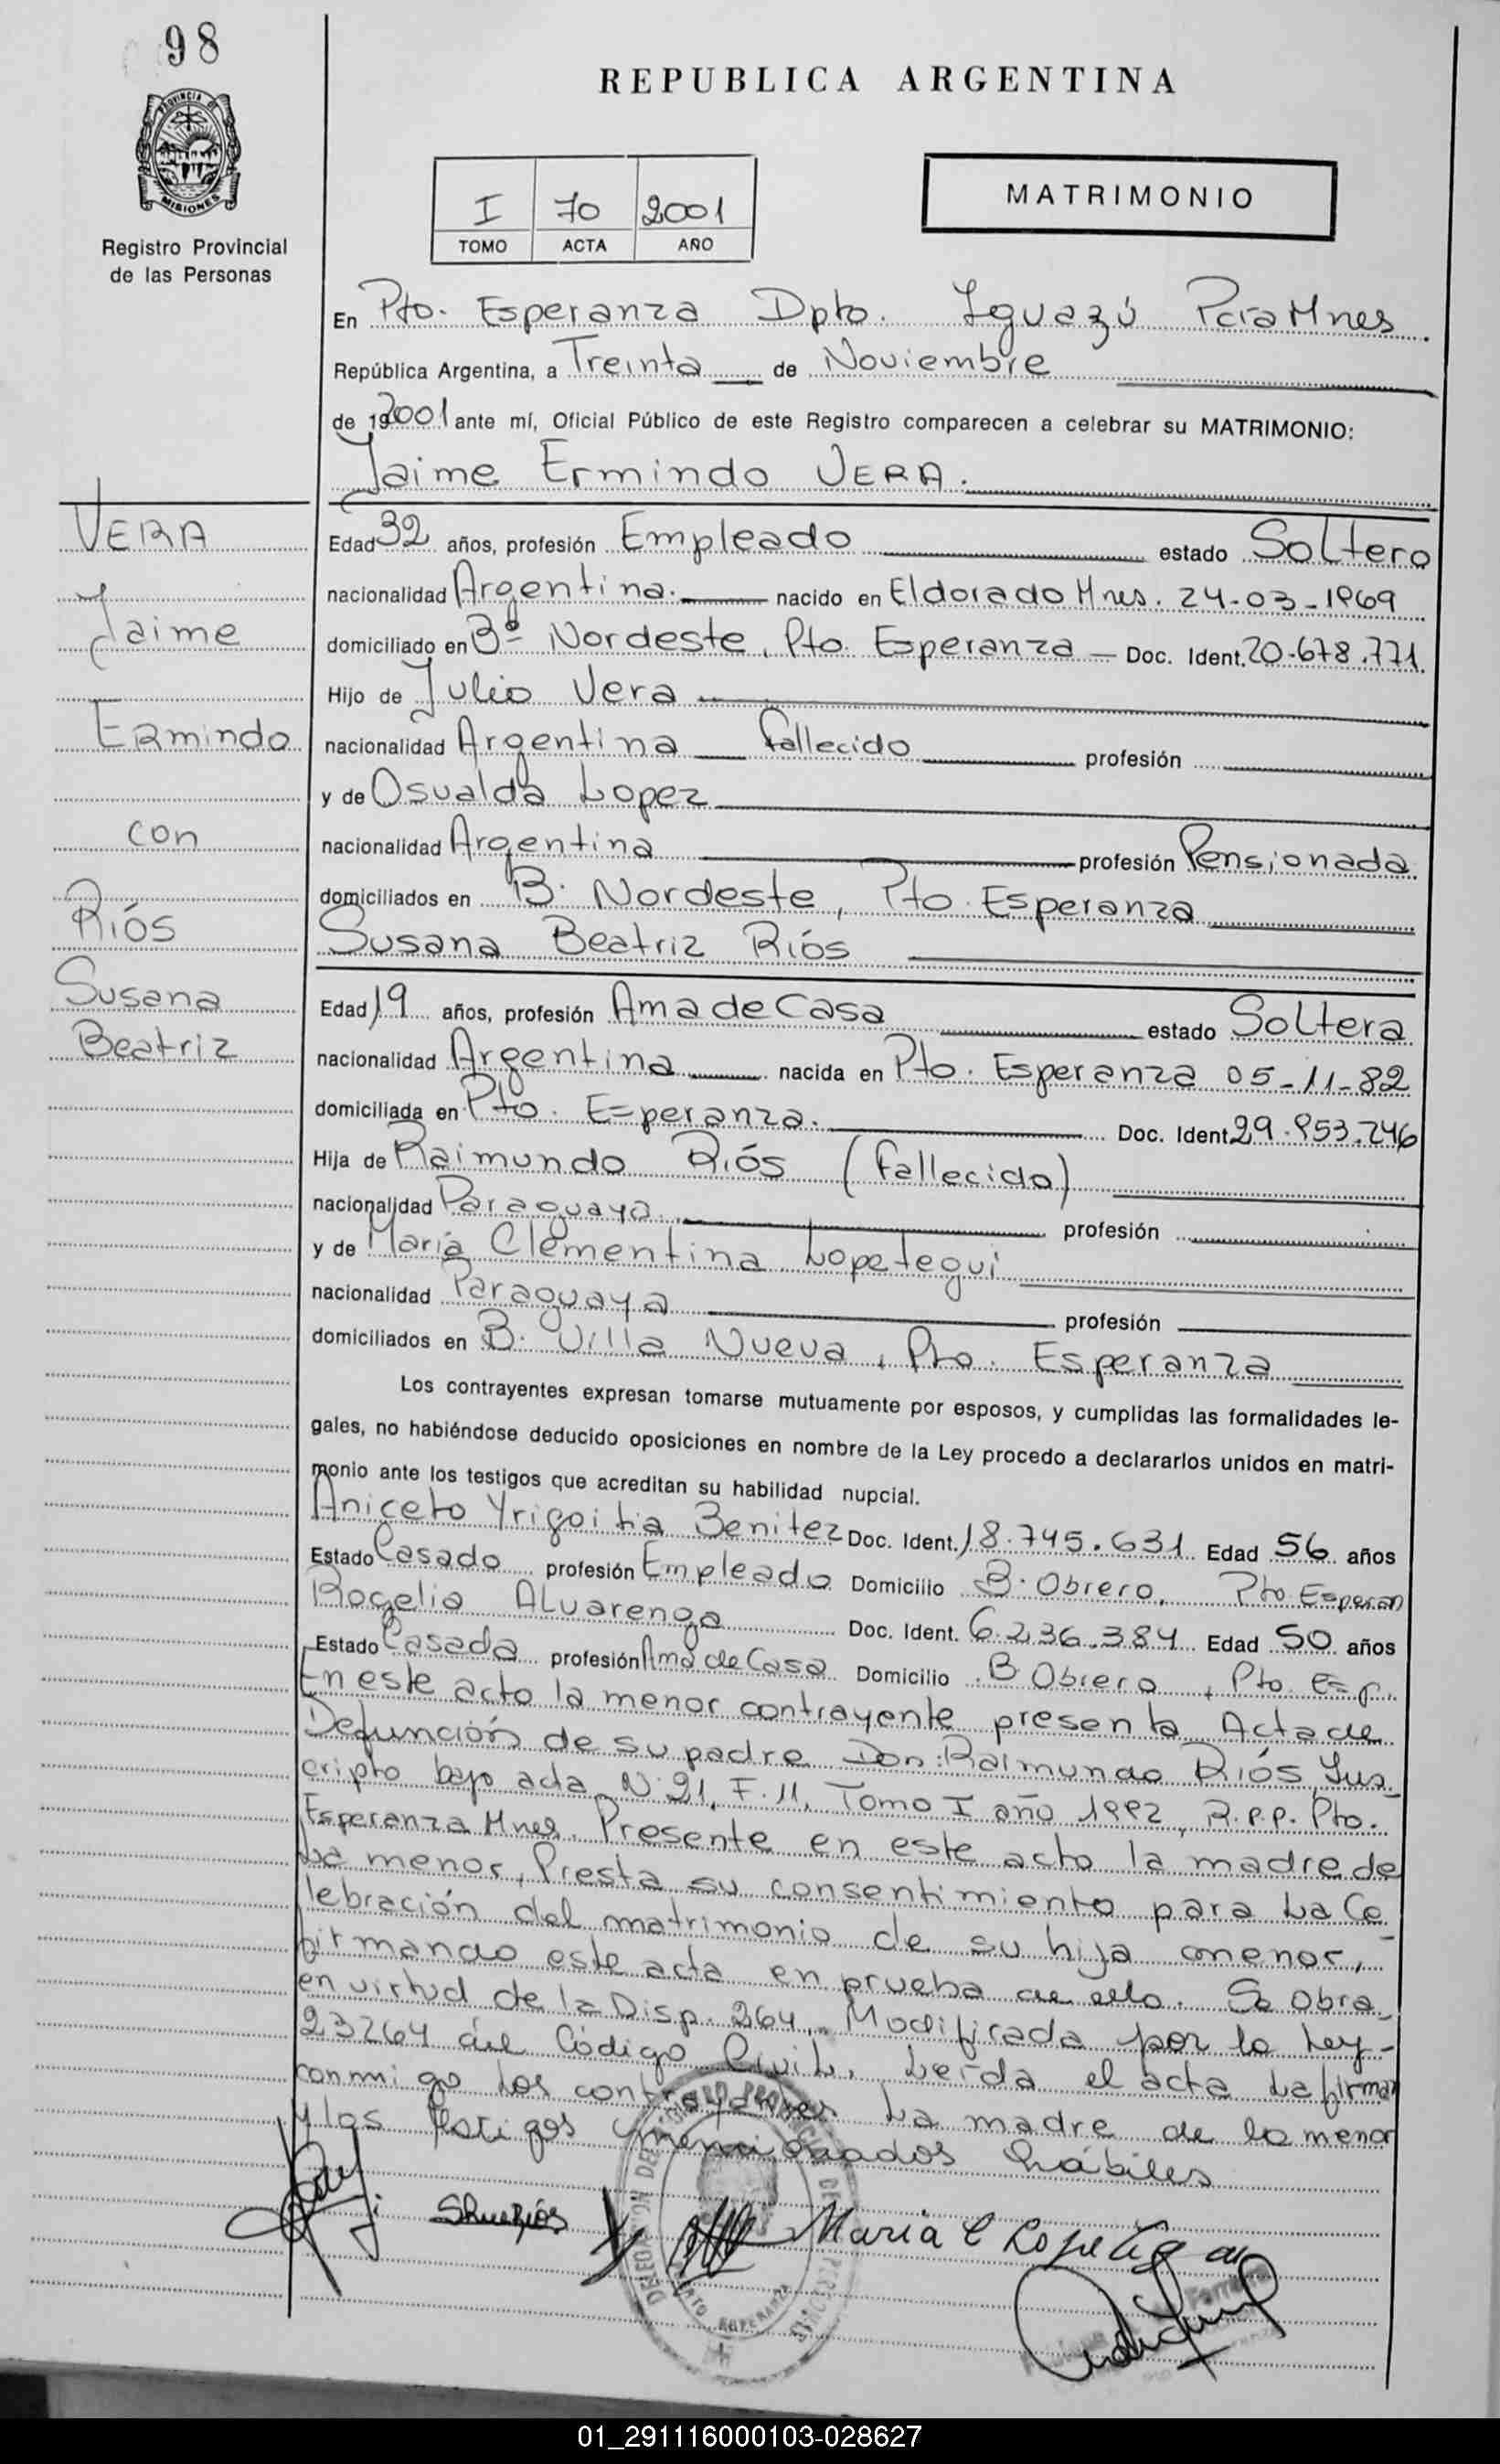 98
PROVINCIA DE
MISIONES
Registro Provincial
de las Personas
REPUBLICA ARGENTINA
I 70 2001
TOMO ACTA AÑO
MATRIMONIO
En Pto. Esperanza Dpto. Iguazú Pcia Mnes
República Argentina, a Treinta de Noviembre
de 192001 ante mí, Oficial Público de este Registro comparecen a celebrar su MATRIMONIO:
Jaime Ermindo VERA.
VERA
Jaime
Ermindo
con
Ríos
Susana
Beatriz
Edad 32 años, profesión Empleado estado Soltero
nacionalidad Argentina. nacido en Eldorado Mnes. 24-03-1969
domiciliado en Bº Nordeste, Pto. Esperanza - Doc. Ident. 20.678.771
Hijo de Julio Vera
nacionalidad Argentina fallecido profesión
y de Osualda Lopez
nacionalidad Argentina profesión Pensionada
domiciliados en B. Nordeste, Pto. Esperanza
Susana Beatriz Ríos
Edad 19 años, profesión Ama de Casa estado Soltera
nacionalidad Argentina nacida en Pto. Esperanza 05-11-82
domiciliada en Pto. Esperanza. Doc. Ident. 29.953.246
Hija de Raimundo Ríos (fallecido)
nacionalidad Paraguaya. profesión
y de María Clementina Lopetegui
nacionalidad Paraguaya profesión
domiciliados en B. Villa Nueva, Pto. Esperanza
Los contrayentes expresan tomarse mutuamente por esposos, y cumplidas las formalidades le-
gales, no habiéndose deducido oposiciones en nombre de la Ley procedo a declararlos unidos en matri-
monio ante los testigos que acreditan su habilidad nupcial.
Aniceto Yrigoitia Benitez Doc. Ident. 18.745.631 Edad 56 años
Estado Casado profesión Empleado Domicilio B. Obrero, Pto Esperan
Rogelia Alvarenga Doc. Ident. 6.236.384 Edad 50 años
Estado Casada profesión Ama de Casa Domicilio B Obrero, Pto. Esp.
En este acto la menor contrayente presenta Acta de
Defunción de su padre Don: Raimundo Ríos, Ins-
cripto bajo acta N: 21, F. 11, Tomo I año 1992, R.P.P. Pto.
Esperanza Mnes. Presente en este acto la madre de
La menor, Presta su consentimiento para La Ce
lebración del matrimonio de su hija menor,-
firmando este acta en prueba de ello. Se obra-
en virtud de la Disp. 264, Modificada por la Ley-
23264 del Código Civil. Leída el acta La firman
conmigo los contrayentes La madre de la menor
y los testigos mencionados hábiles
SRíos
Maria C Lopetegui
ESPERANZA
01_291116000103-028627